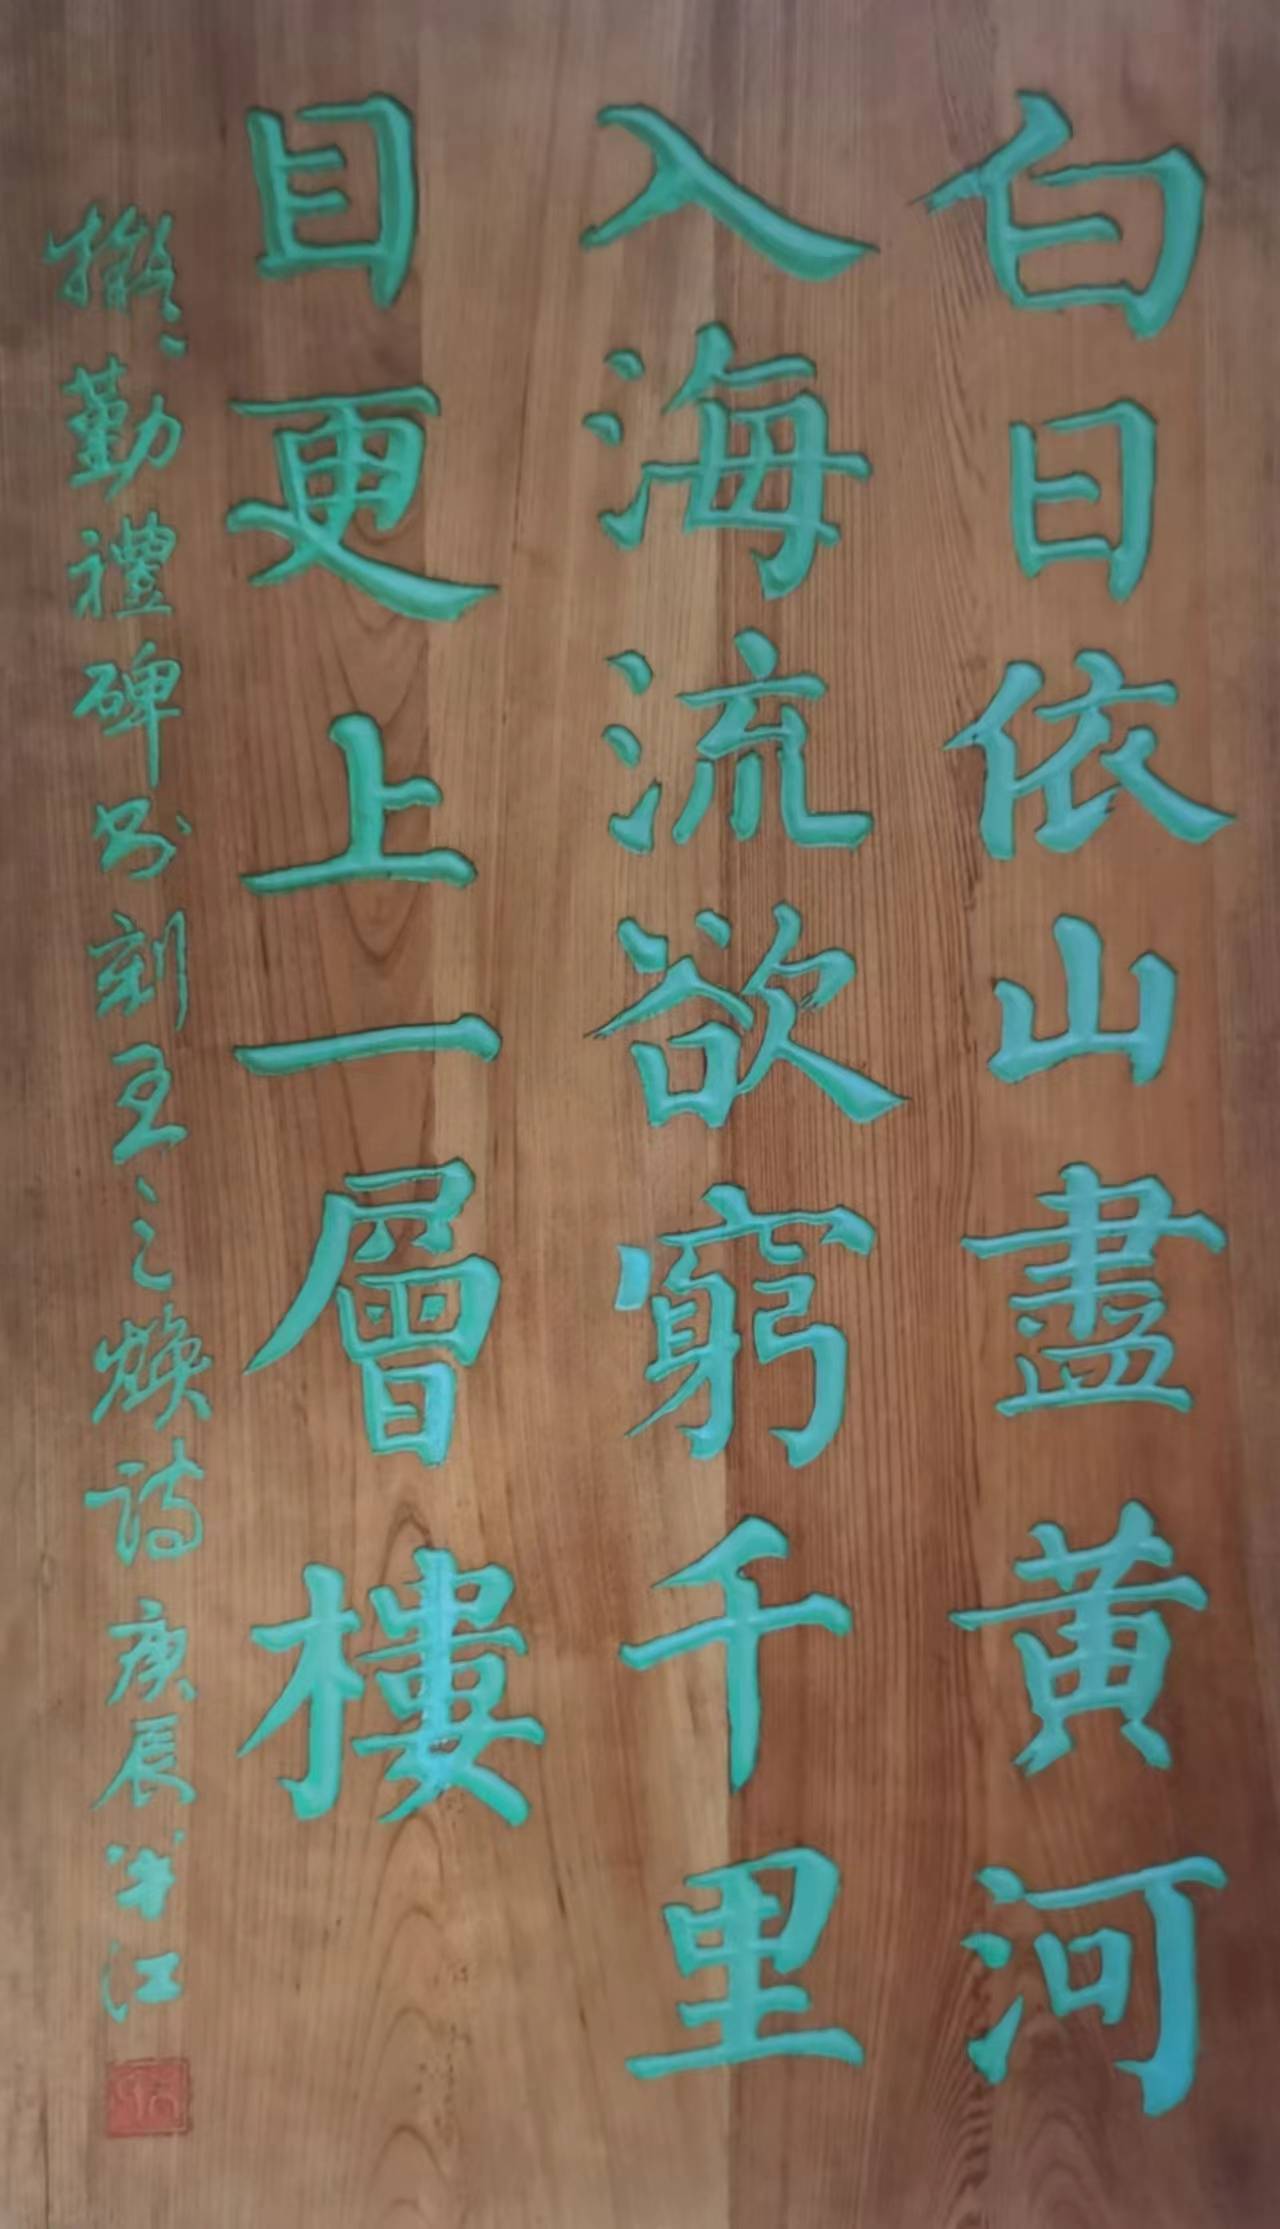 白日依山盡黃河
入海流欲窮千里
目更上一層樓
擬勤禮碑書刻王之煥詩庚辰半江